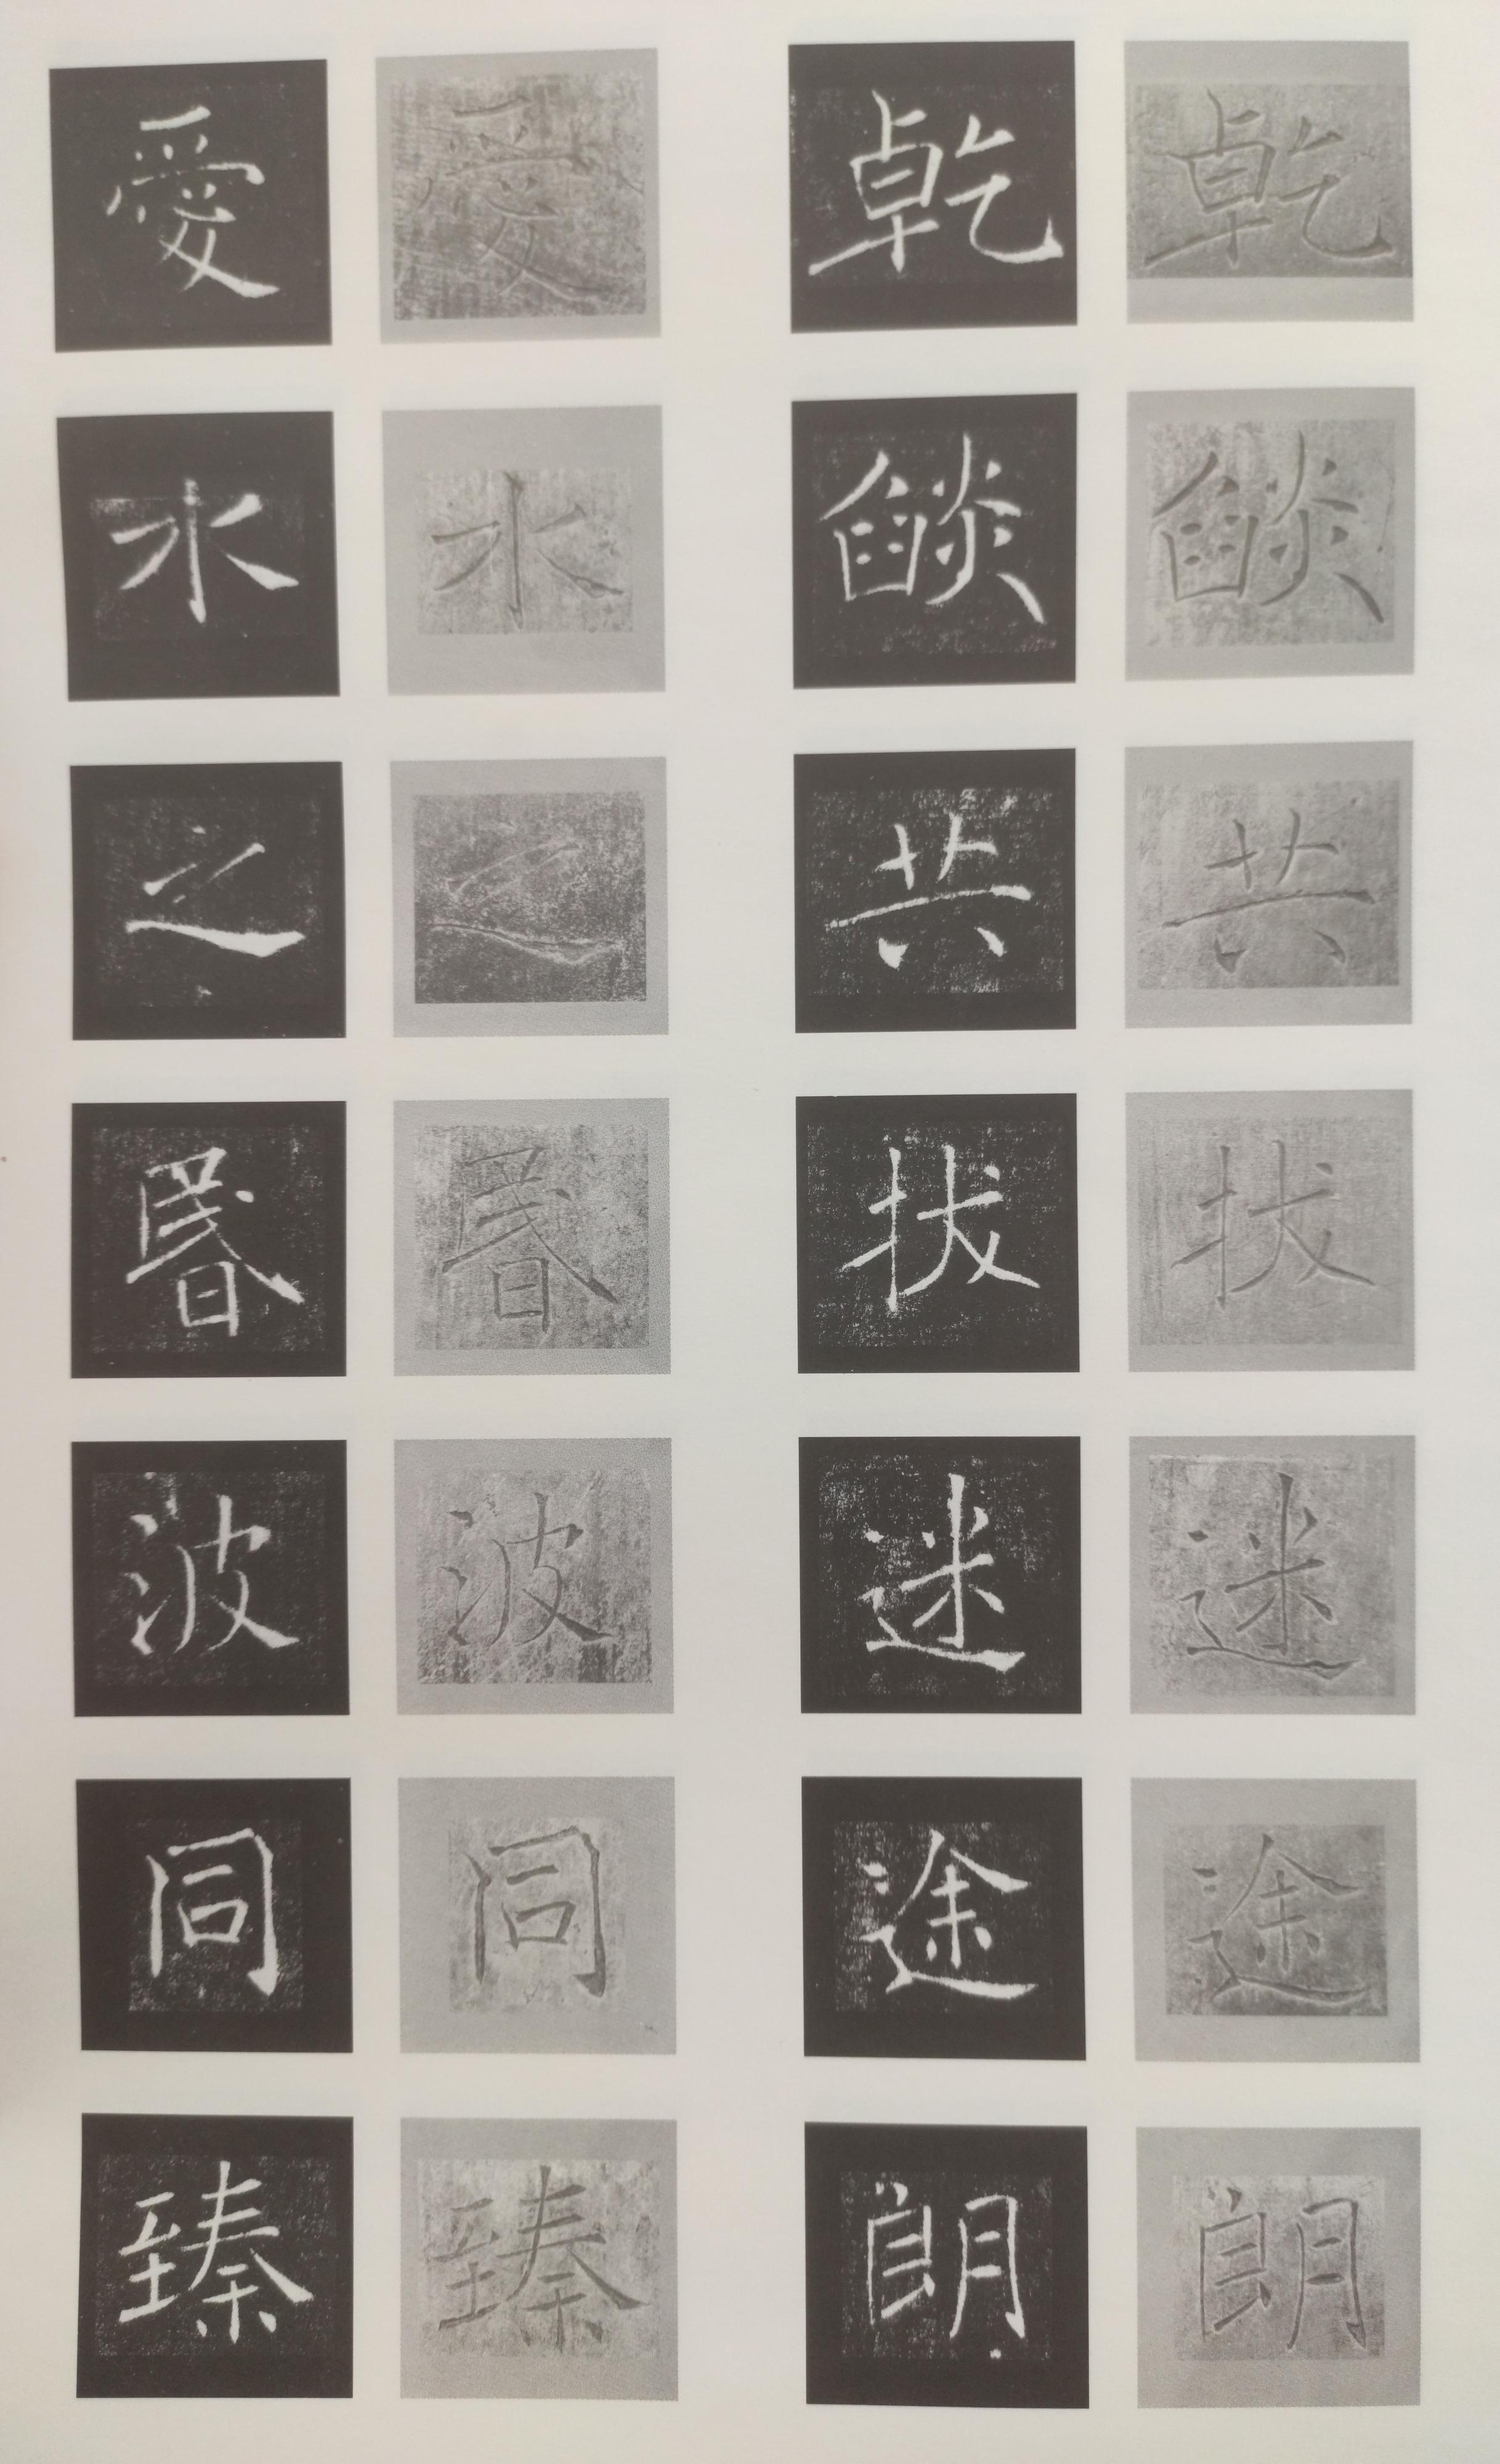 乾燄共拔迷途朗
乾燄共拔迷途朗
愛水之昬波同臻
愛水之昬波同臻